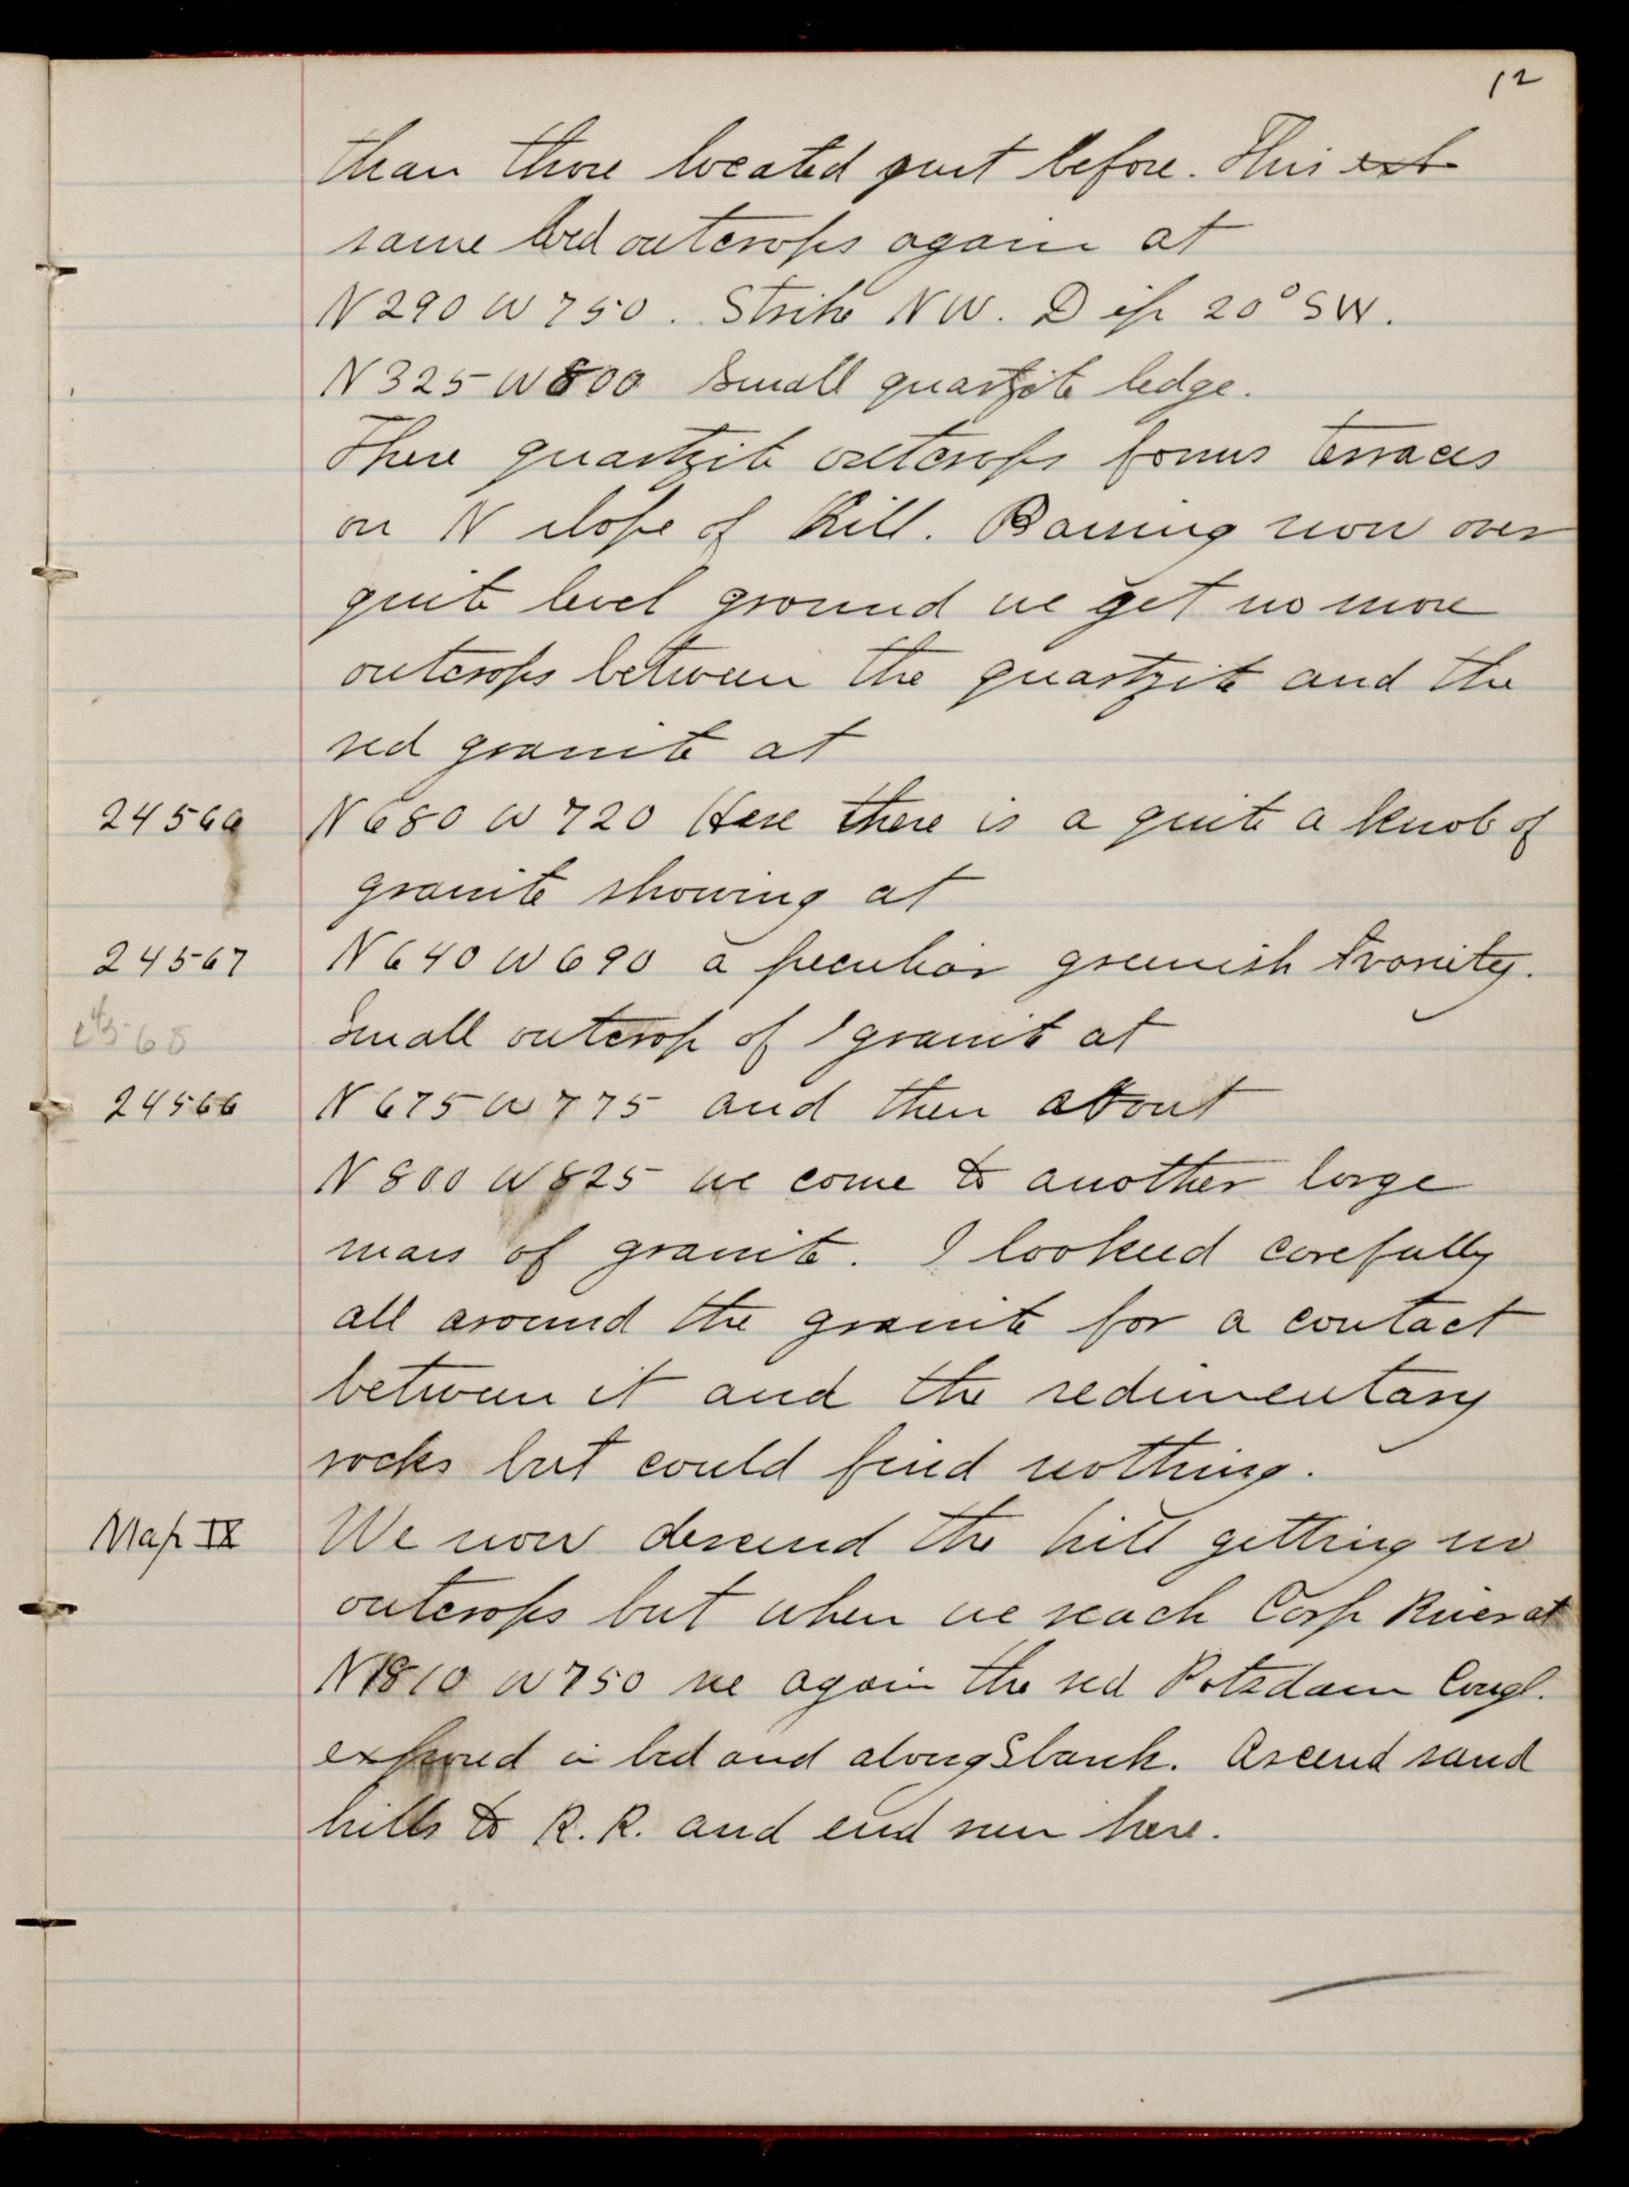 12
than those located just before. This ext
same bed outcrops again at
N290 W750. Strike NW. Dip 20° SW.
N325 W800 Small quartzite ledge.
These quartzite outcrops forms terraces
on N slope of hill. Passing now over
quite level ground we get no more
outcrops between the quartzite and the
red granite at
24566 N680 W720 Here there is a quite a knob of
granite showing at
24567 N640 W690 a peculiar greenish
Small outcrop of granite at
24566 N675 W775 and then about
N800 W825 we come to another large
mass of granite. I looked carefully
all around the granite for a contact
between it and the sedimentary
rocks but could find nothing.
Map IX We now descend the hill getting no
outcrops but when we reach Carp River at
N1810 W750 we again the red Potsdam Congl.
exposed in bed and along S bank. Ascend sand
hills to R.R. and end run here.